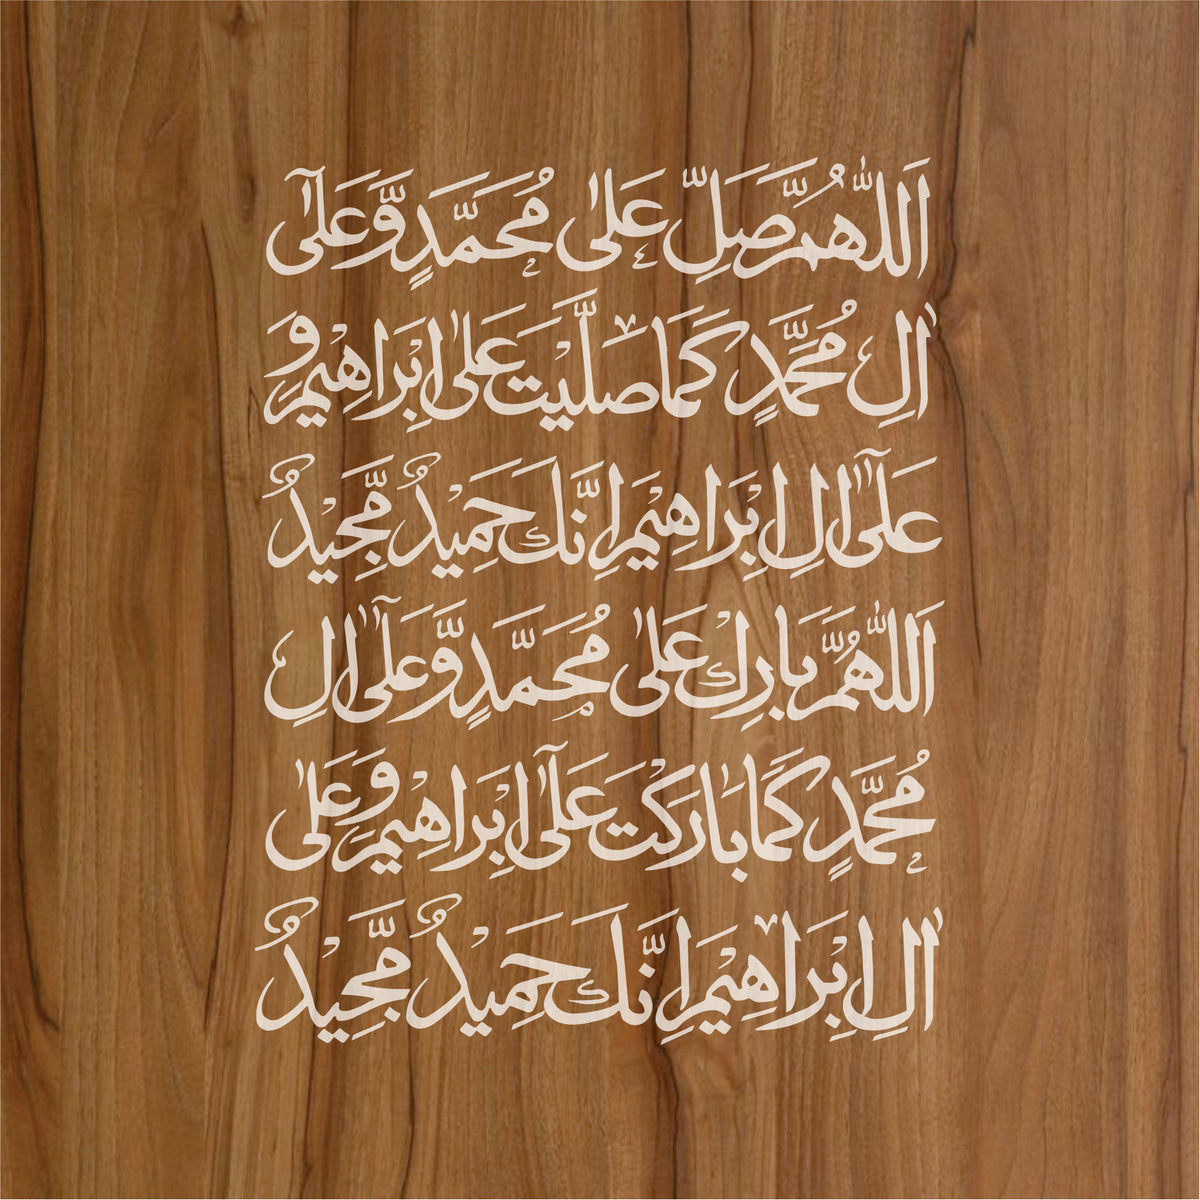 اَللّٰهُمَّ صَلِّ عَلٰى مُحَمَّدٍ وَّعَلٰٓى
اٰلِ مُحَمَّدٍ كَمَا صَلَّيْتَ عَلٰى اِبْرَاهِيْمَ وَ
عَلٰٓى اٰلِ اِبْرَاهِيْمَ اِنَّكَ حَمِيْدٌ مَّجِيْدٌ
اَللّٰهُمَّ بَارِكْ عَلٰى مُحَمَّدٍ وَّعَلٰٓى اٰلِ
مُحَمَّدٍ كَمَا بَارَكْتَ عَلٰٓى اِبْرَاهِيْمَ وَعَلٰى
اٰلِ اِبْرَاهِيْمَ اِنَّكَ حَمِيْدٌ مَّجِيْدٌ